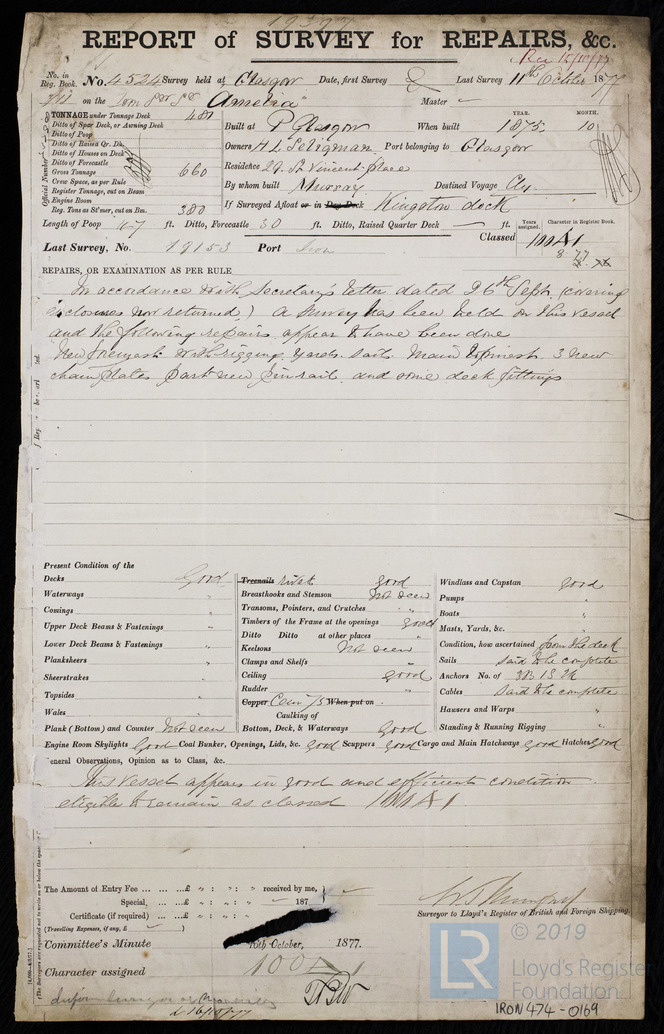 REPORT of SURVEY for REPAIRS, &c.
Rec 15/10/77
No. in Reg. Book. No. 4524 Survey held at Glasgow Date, first Survey Last Survey 11th October 1877
on the Iron "Amelia" Master
TONNAGE under Tonnage Deck 480
Ditto of Spar Deck, or Awning Deck
Ditto of Poop
Ditto of Raised Qr. Dk.
Ditto of Houses on Deck
Ditto of Forecastle
Gross Tonnage 660
Crew Space, as per Rule
Register Tonnage, cut on Beam
Engine Room
Reg. Tons as St'mer, cut on Bm. 380
Official Number
Built at P Glasgow When built YEAR. 1875 MONTH. 10
Owners H L Seligman Port belonging to Glasgow
Residence 29 St Vincent place
By whom built Murray Destined Voyage
If Surveyed Afloat or in Dry Dock Kingston dock
Length of Poop 47 ft. Ditto, Forecastle 30 ft. Ditto, Raised Quarter Deck — ft.
Years assigned. Character in Register Book.
Classed 100A1
8 77
Last Survey, No. 19153 Port Iron
REPAIRS, OR EXAMINATION AS PER RULE
In accordance with Secretary's letter dated 26th Sept. (covering
enclosures now returned) A survey has been held on this vessel
and the following repairs appear to have been done
New foremast with rigging yards sails Main topmast 3 new
chain plates part new pinrail and some deck fittings
Present Condition of the
Decks Good
Waterways "
Comings "
Upper Deck Beams & Fastenings "
Lower Deck Beams & Fastenings "
Planksheers "
Sheerstrakes "
Topsides "
Wales "
Plank (Bottom) and Counter Not seen
Treenails Rivets good
Breasthooks and Stemson Not seen
Transoms, Pointers, and Crutches " "
Timbers of the Frame at the openings good
Ditto Ditto at other places "
Keelsons Not seen
Clamps and Shelfs "
Ceiling good
Rudder "
Copper Cem When put on
Caulking of
Bottom, Deck, & Waterways Good
Windlass and Capstan good
Pumps "
Boats "
Masts, Yards, &c. "
Condition, how ascertained from the deck
Sails said to be complete
Anchors No. of 3B 1S 2K
Cables said to be complete
Hausers and Warps "
Standing & Running Rigging "
Engine Room Skylights Good Coal Bunker, Openings, Lids, &c. Good Scuppers Good Cargo and Main Hatchways good Hatches Good
General Observations, Opinion as to Class, &c.
This vessel appears in good and efficient condition
eligible to remain as classed 100A1
The Amount of Entry Fee ... ... ...£ " : " : " received by me,
Special, ... ... ...£ " : " : " 187
Certificate (if required) ... ...£ " : " : "
(Travelling Expenses, if any, £ )
Surveyor to Lloyd's Register of British and Foreign Shipping.
Committee's Minute 16th October, 1877.
Character assigned 100A1
16/10/77
© 2019
LR
Lloyd's Register
Foundation
IRON 474-0169